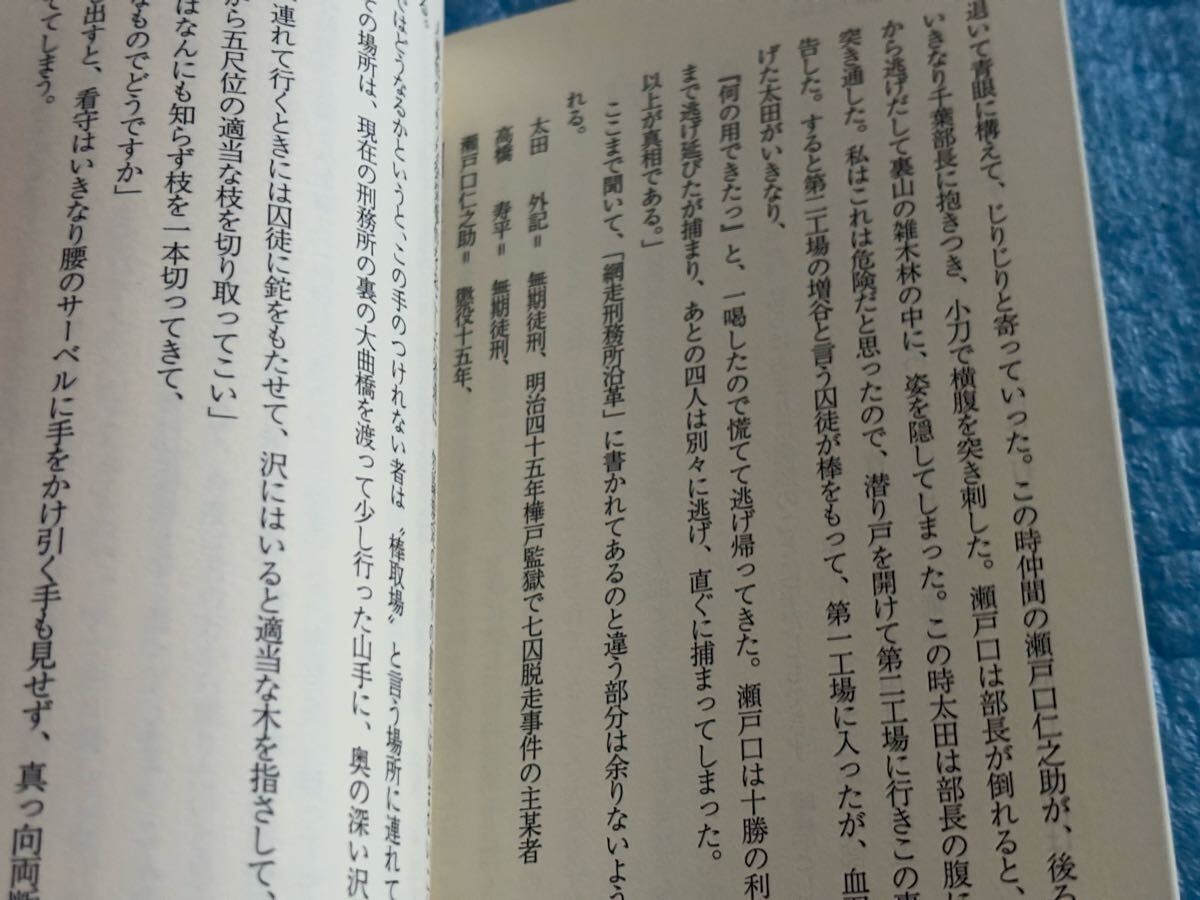 退いて青眼に構えて、じりじりと寄っていった。この時仲間の瀬戸口仁之助が、後ろ
いきなり千葉部長に抱きつき、小刀で横腹を突き刺した。瀬戸口は部長が倒れると、
から逃げだして裏山の雑木林の中に、姿を隠してしまった。この時太田は部長の腹に
突き通した。私はこれは危険だと思ったので、潜り戸を開けて第二工場に行きこの事
告した。すると第二工場の増谷と言う囚徒が棒をもって、第一工場に入ったが、血
げた太田がいきなり、
『何の用できたっ』と、一喝したので慌てて逃げ帰ってきた。瀬戸口は十勝の利
まで逃げ延びたが捕まり、あとの四人は別々に逃げ、直ぐに捕まってしまった。
以上が真相である。」
ここまで聞いて、「網走刑務所沿革」に書かれてあるのと違う部分は余りないよう
れる。
太田　外記＝　無期徒刑、明治四十五年樺戸監獄で七囚脱走事件の主某者
高橋　寿平＝　無期徒刑、
瀬戸口仁之助＝　懲役十五年、
る。
ではどうなるかというと、この手のつけれない者は〝棒取場〟と言う場所に連れて
その場所は、現在の刑務所の裏の大曲橋を渡って少し行った山手に、奥の深い沢
連れて行くときには囚徒に鉈をもたせて、沢にはいると適当な木を指さして、
から五尺位の適当な枝を切り取ってこい」
はなんにも知らず枝を一本切ってきて、
なものでどうですか」
出すと、看守はいきなり腰のサーベルに手をかけ引く手も見せず、真っ向両断
てしまう。